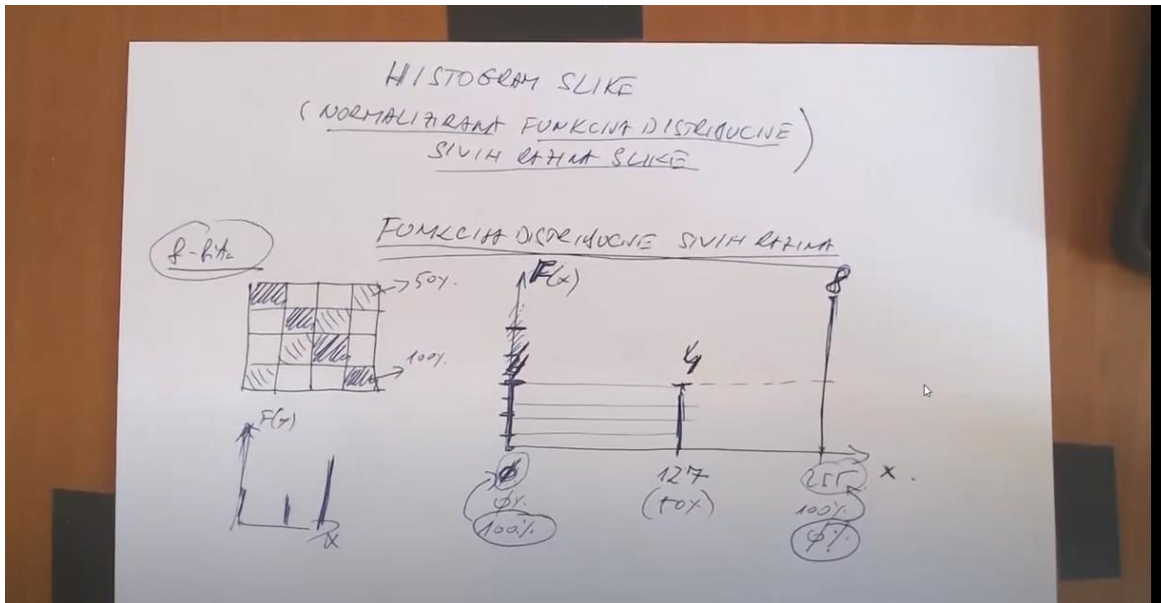 HISTOGRAM SLIKE
(NORMALIZIRANA FUNKCIJA DISTRIBUCIJE
SIVIH RAZINA SLIKE)
FUNKCIJA DISTRIBUCIJE SIVIH RAZINA
8-bita
50%
100%
F(x)
x
F(x)
4
4
8
0
127
255
x
0%
(50%)
100%
100%
0%